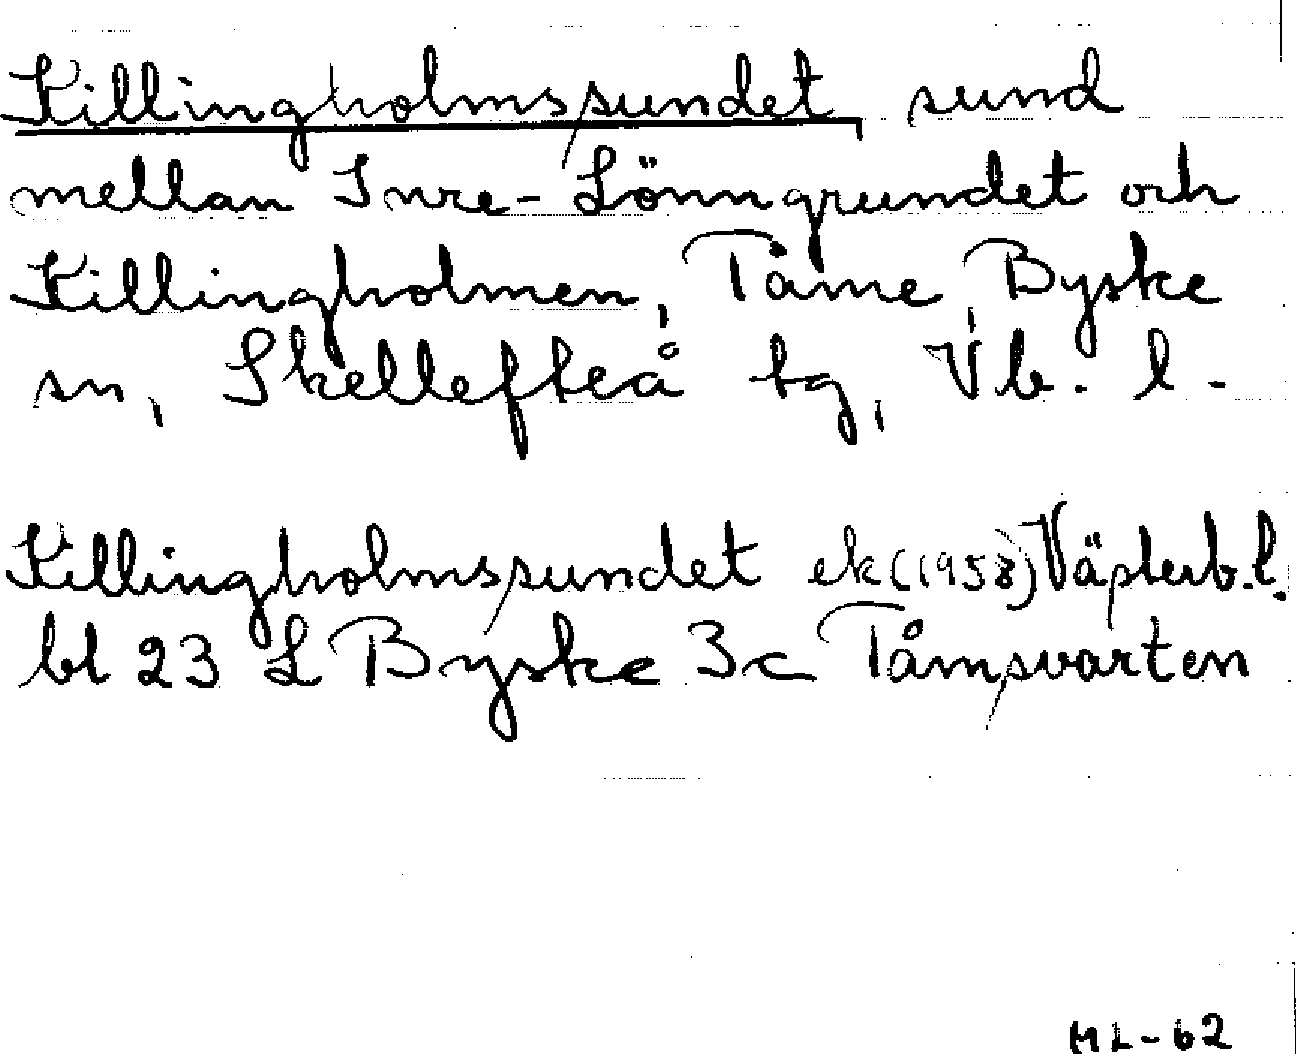 Killingholmssundet, sund
mellan Inre-Lönngrundet och
Killingholmen, Tåme, Byske
sn, Skellefteå tg, Vb. l.
Killingholmssundet ek (1958) Västerb. l.
bl 23 L Byske 3c Tåmsvarten
ML-62